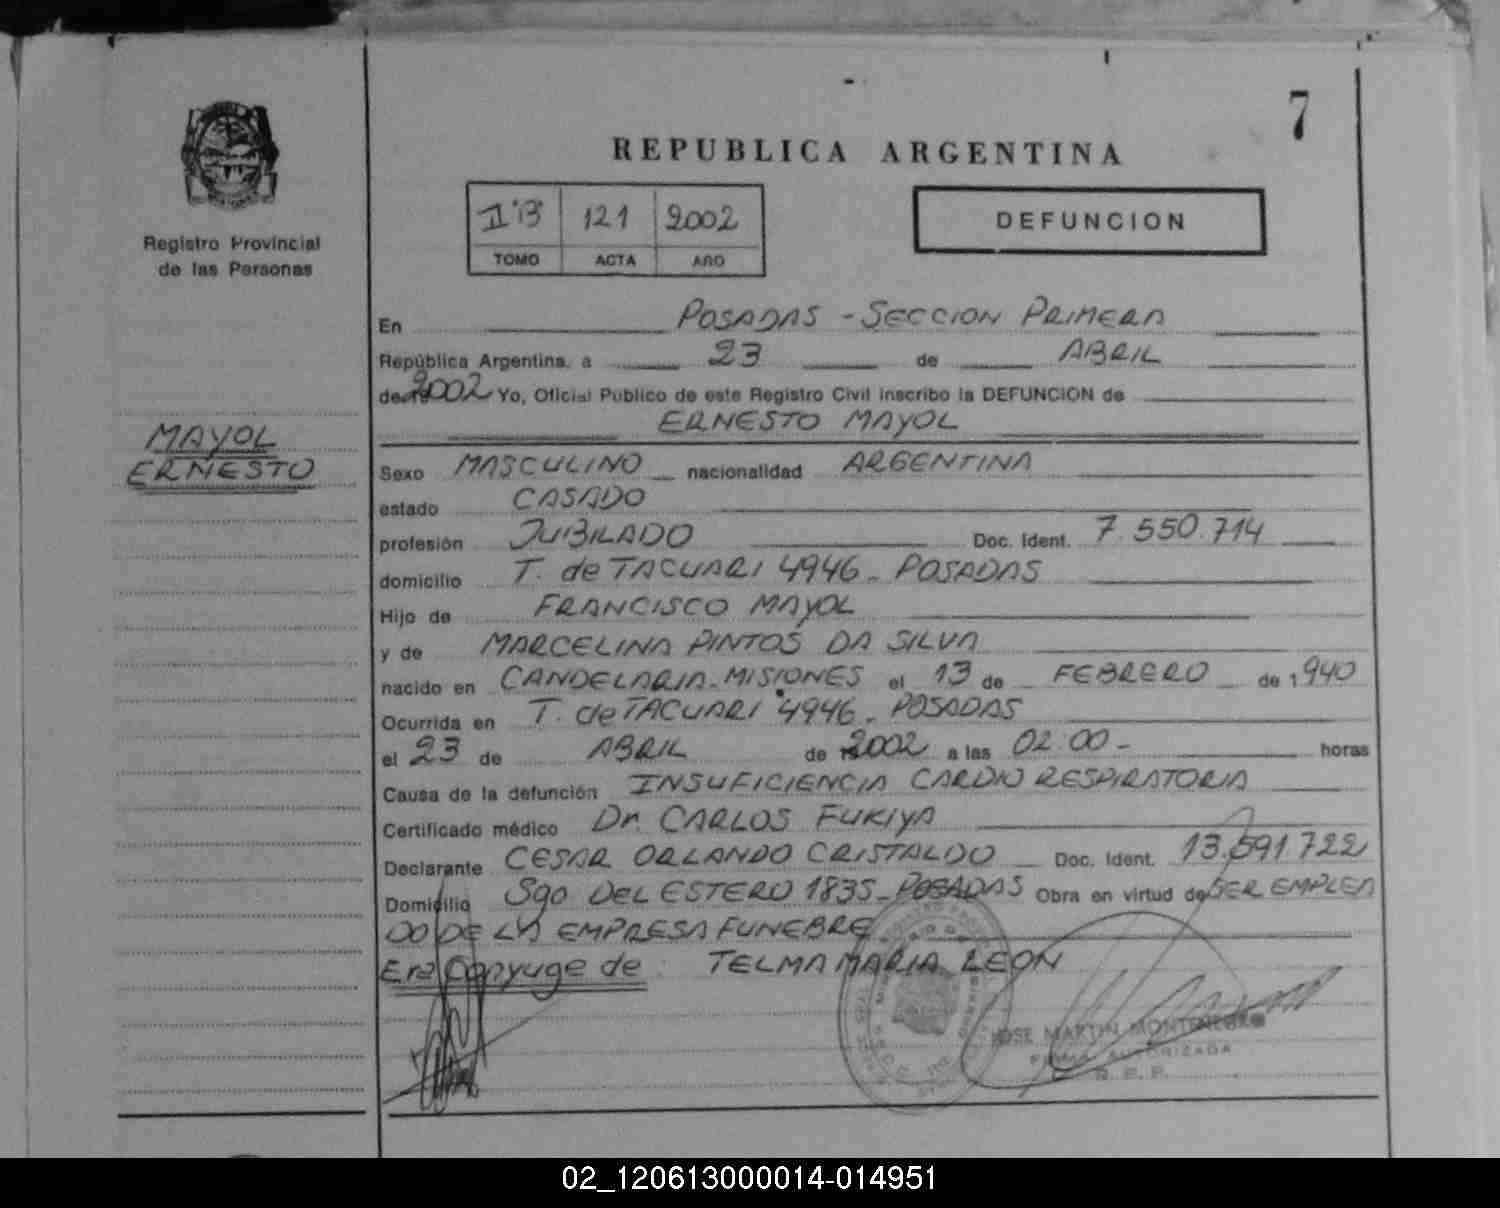 7
REPUBLICA ARGENTINA
Registro Provincial
de las Personas
II "B" 121 2002
TOMO ACTA AÑO
DEFUNCION
MAYOL
ERNESTO
En POSADAS - SECCION PRIMERA
República Argentina, a 23 de ABRIL
de 2002 Yo, Oficial Publico de este Registro Civil inscribo la DEFUNCION de
ERNESTO MAYOL
Sexo MASCULINO nacionalidad ARGENTINA
estado CASADO
profesión JUBILADO Doc. Ident. 7.550.714
domicilio T. de TACUARI 4946 - POSADAS
Hijo de FRANCISCO MAYOL
y de MARCELINA PINTOS DA SILVA
nacido en CANDELARIA - MISIONES el 13 de FEBRERO de 1940
Ocurrida en T. de TACUARI 4946 - POSADAS
el 23 de ABRIL de 2002 a las 02:00 - horas
Causa de la defunción INSUFICIENCIA CARDIO RESPIRATORIA
Certificado médico Dr. CARLOS FUKIYA
Declarante CESAR ORLANDO CRISTALDO Doc. Ident. 13.591.722
Domicilio Sgo DEL ESTERO 1835 - POSADAS Obra en virtud de SER EMPLEA
DO DE LA EMPRESA FUNEBRE
Era Conyuge de : TELMA MARIA LEON
JOSE MARTIN MONTENEGRO
FIRMA AUTORIZADA
R. P. P.
02_120613000014-014951